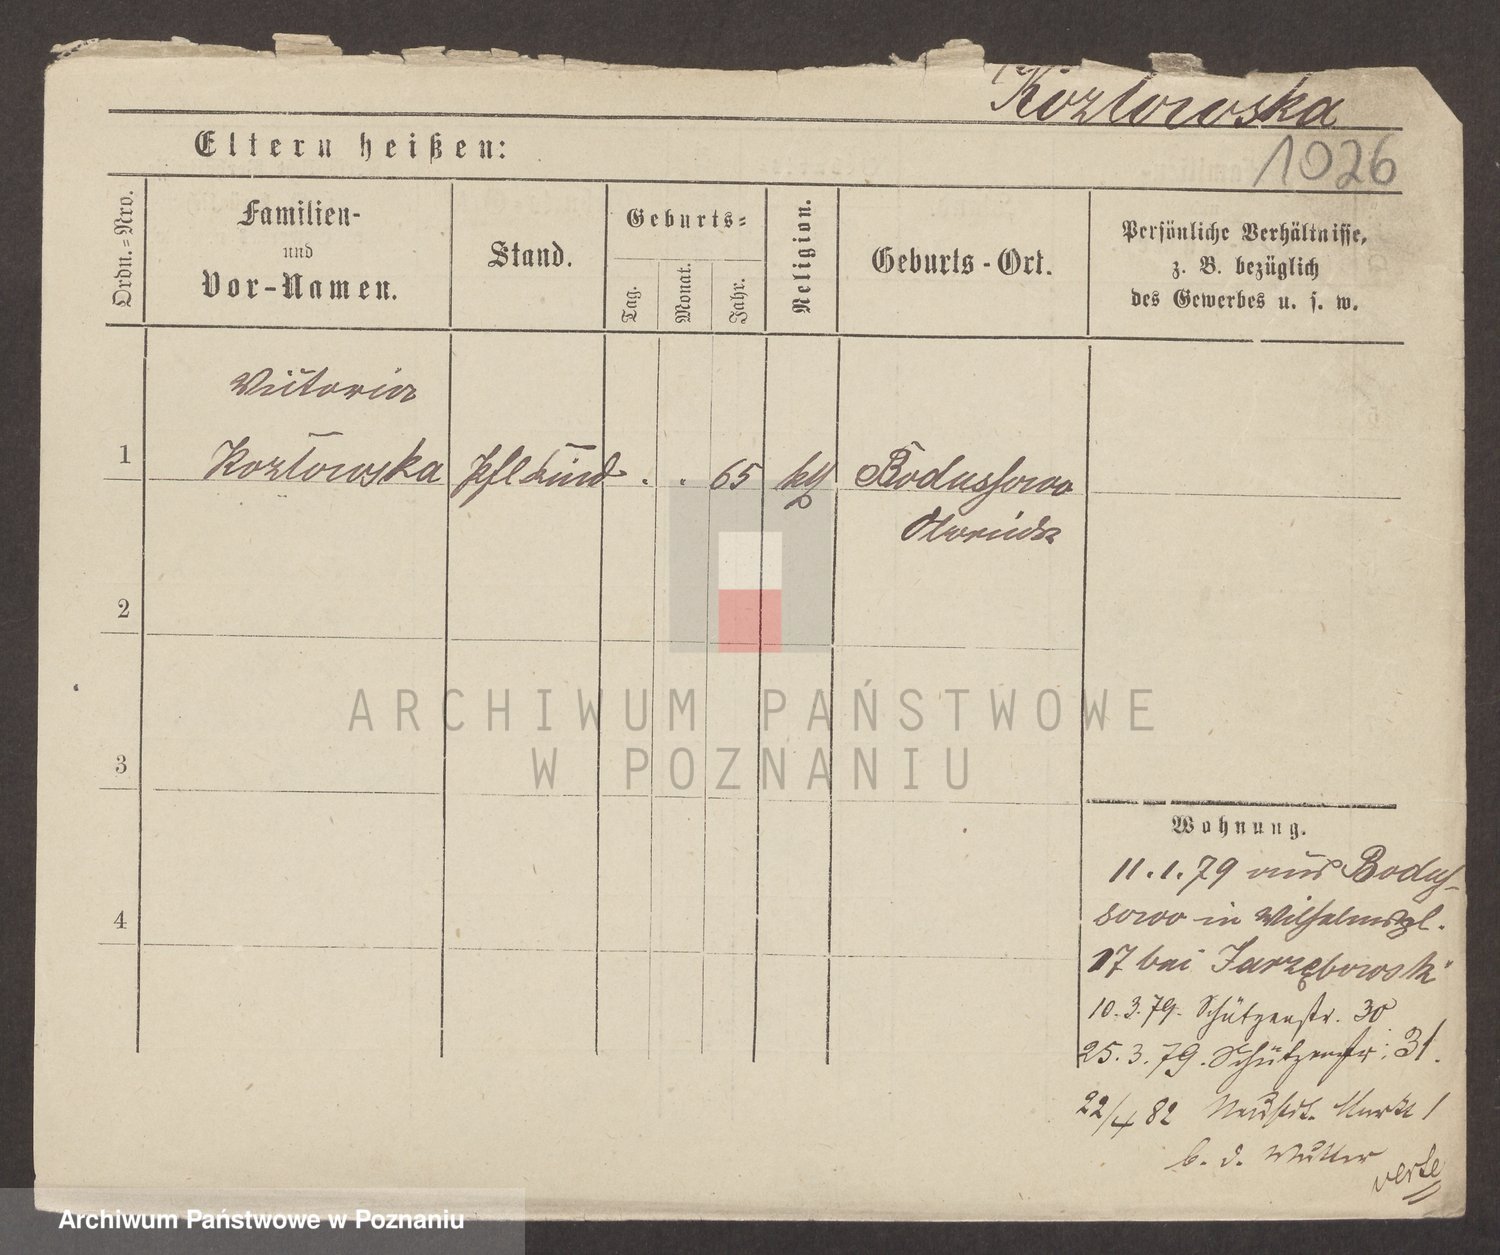 Kozłowska
1026
Eltern heißen:
Ordn.=Nro.
Familien-
und
Vor-Namen.
Stand.
Geburts=
Tag.
Monat.
Jahr.
Religion.
Geburts-Ort.
Persönliche Verhältnisse,
z. B. bezüglich
des Gewerbes u. s. w.
Victoria
1 Kozłowska 65 Boduszewo
Obornick
2
3
4
ARCHIWUM PAŃSTWOWE
W POZNANIU
Wohnung.
11.1.79 aus Bodus-
in Wilhelmspl.
17 bei Jarzębowski
10.3.79. Schützenstr. 30
25.3.79. Schützenstr. 31.
22/4 82 Neust. Markt 1
b. d. Mutter
verte
Archiwum Państwowe w Poznaniu